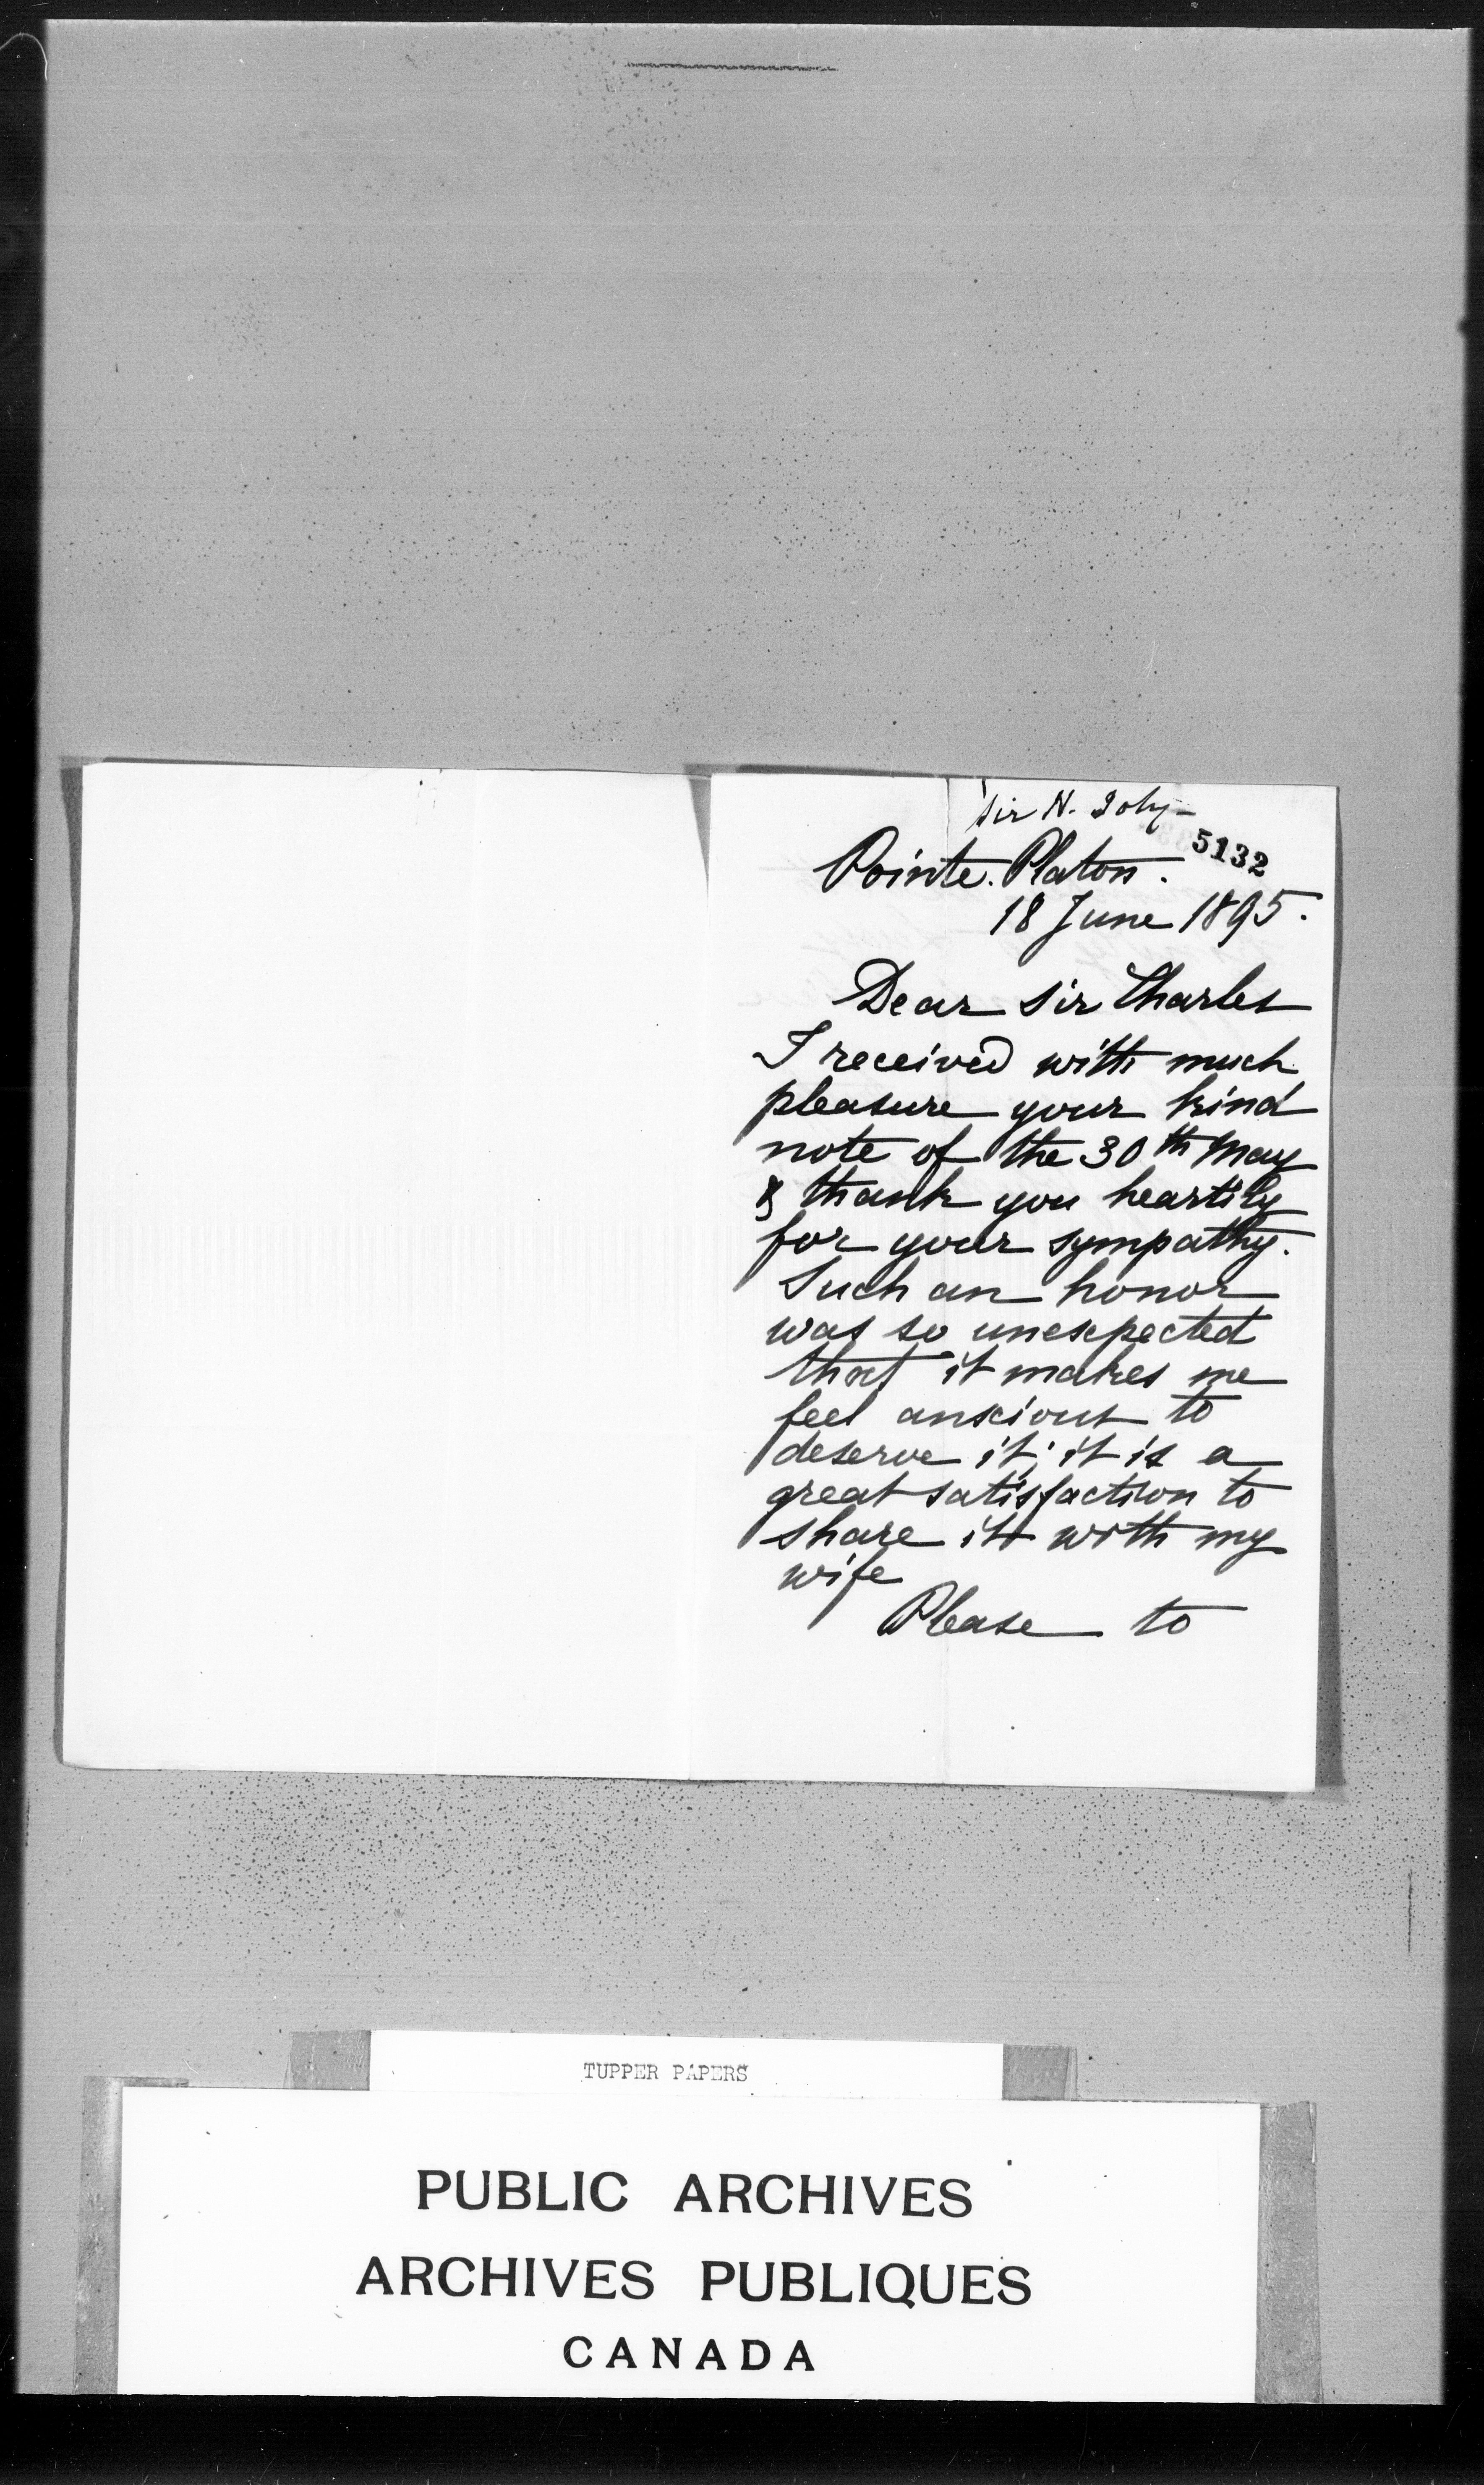 Sir H. Joly
5132
Pointe. Platon.
18 June 1895.
Dear Sir Charles
I received with much
pleasure your kind
note of the 30th May
& thank you heartily
for your sympathy.
Such an honor
was so unexpected
that it makes me
feel anxious to
deserve it; it is a
great satisfaction to
share it with my
wife
Please to
TUPPER PAPERS
PUBLIC ARCHIVES
ARCHIVES PUBLIQUES
CANADA